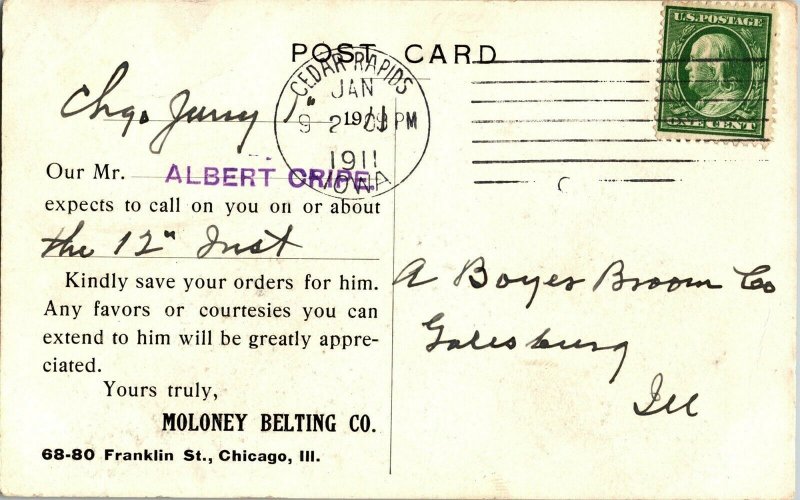 POST CARD
U.S. POSTAGE
ONE CENT
CEDAR RAPIDS
JAN
9
PM
1911
IOWA
Chgo
Our Mr. ALBERT CRIPE.
expects to call on you on or about
the 12" Inst
Kindly save your orders for him.
Any favors or courtesies you can
extend to him will be greatly appre-
ciated.
Yours truly,
MOLONEY BELTING CO.
68-80 Franklin St., Chicago, Ill.
A Boyer Broom Co
Galesburg
Ill